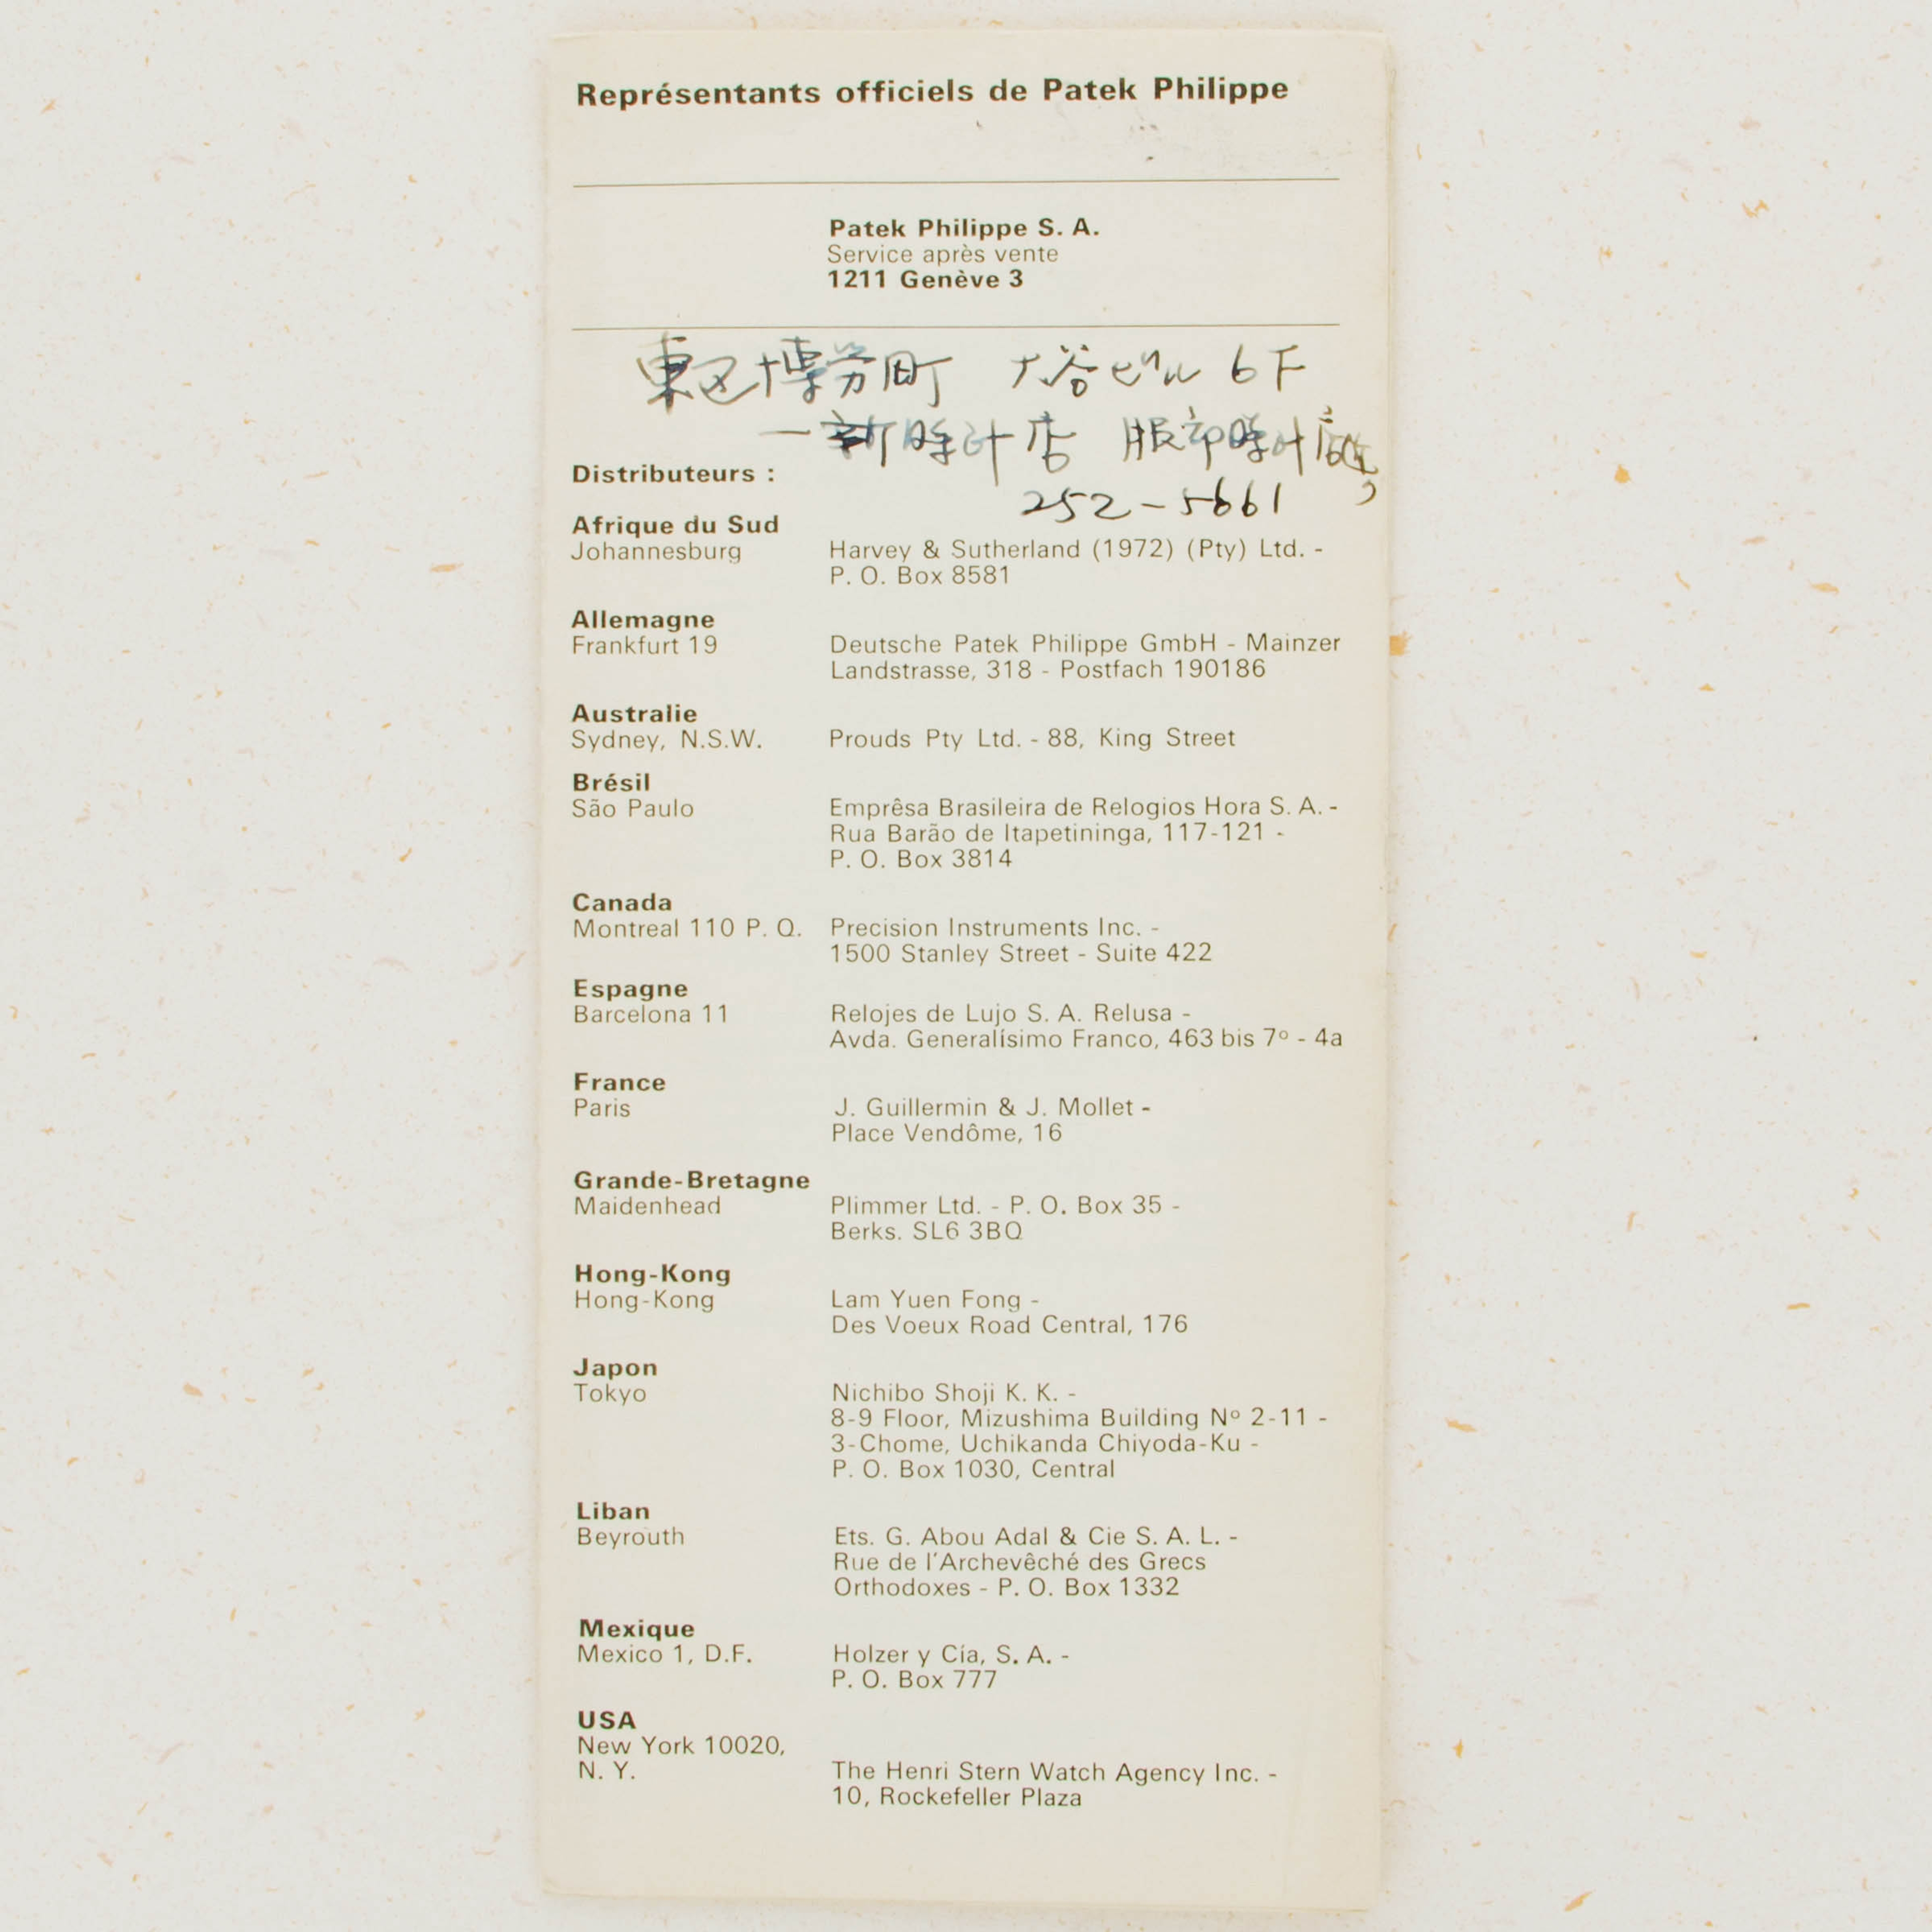 Représentants officiels de Patek Philippe
Patek Philippe S. A.
Service après vente
1211 Genève 3
東区博労町 大谷ビル 6F
一新時計店 服部時計店
252-5661
Distributeurs :
Afrique du Sud
Johannesburg Harvey & Sutherland (1972) (Pty) Ltd. -
P. O. Box 8581
Allemagne
Frankfurt 19 Deutsche Patek Philippe GmbH - Mainzer
Landstrasse, 318 - Postfach 190186
Australie
Sydney, N.S.W. Prouds Pty Ltd. - 88, King Street
Brésil
São Paulo Emprêsa Brasileira de Relogios Hora S. A. -
Rua Barão de Itapetininga, 117-121 -
P. O. Box 3814
Canada
Montreal 110 P. Q. Precision Instruments Inc. -
1500 Stanley Street - Suite 422
Espagne
Barcelona 11 Relojes de Lujo S. A. Relusa -
Avda. Generalísimo Franco, 463 bis 7º - 4a
France
Paris J. Guillermin & J. Mollet -
Place Vendôme, 16
Grande-Bretagne
Maidenhead Plimmer Ltd. - P. O. Box 35 -
Berks. SL6 3BQ
Hong-Kong
Hong-Kong Lam Yuen Fong -
Des Voeux Road Central, 176
Japon
Tokyo Nichibo Shoji K. K. -
8-9 Floor, Mizushima Building Nº 2-11 -
3-Chome, Uchikanda Chiyoda-Ku -
P. O. Box 1030, Central
Liban
Beyrouth Ets. G. Abou Adal & Cie S. A. L. -
Rue de l'Archevêché des Grecs
Orthodoxes - P. O. Box 1332
Mexique
Mexico 1, D.F. Holzer y Cía, S. A. -
P. O. Box 777
USA
New York 10020,
N. Y. The Henri Stern Watch Agency Inc. -
10, Rockefeller Plaza